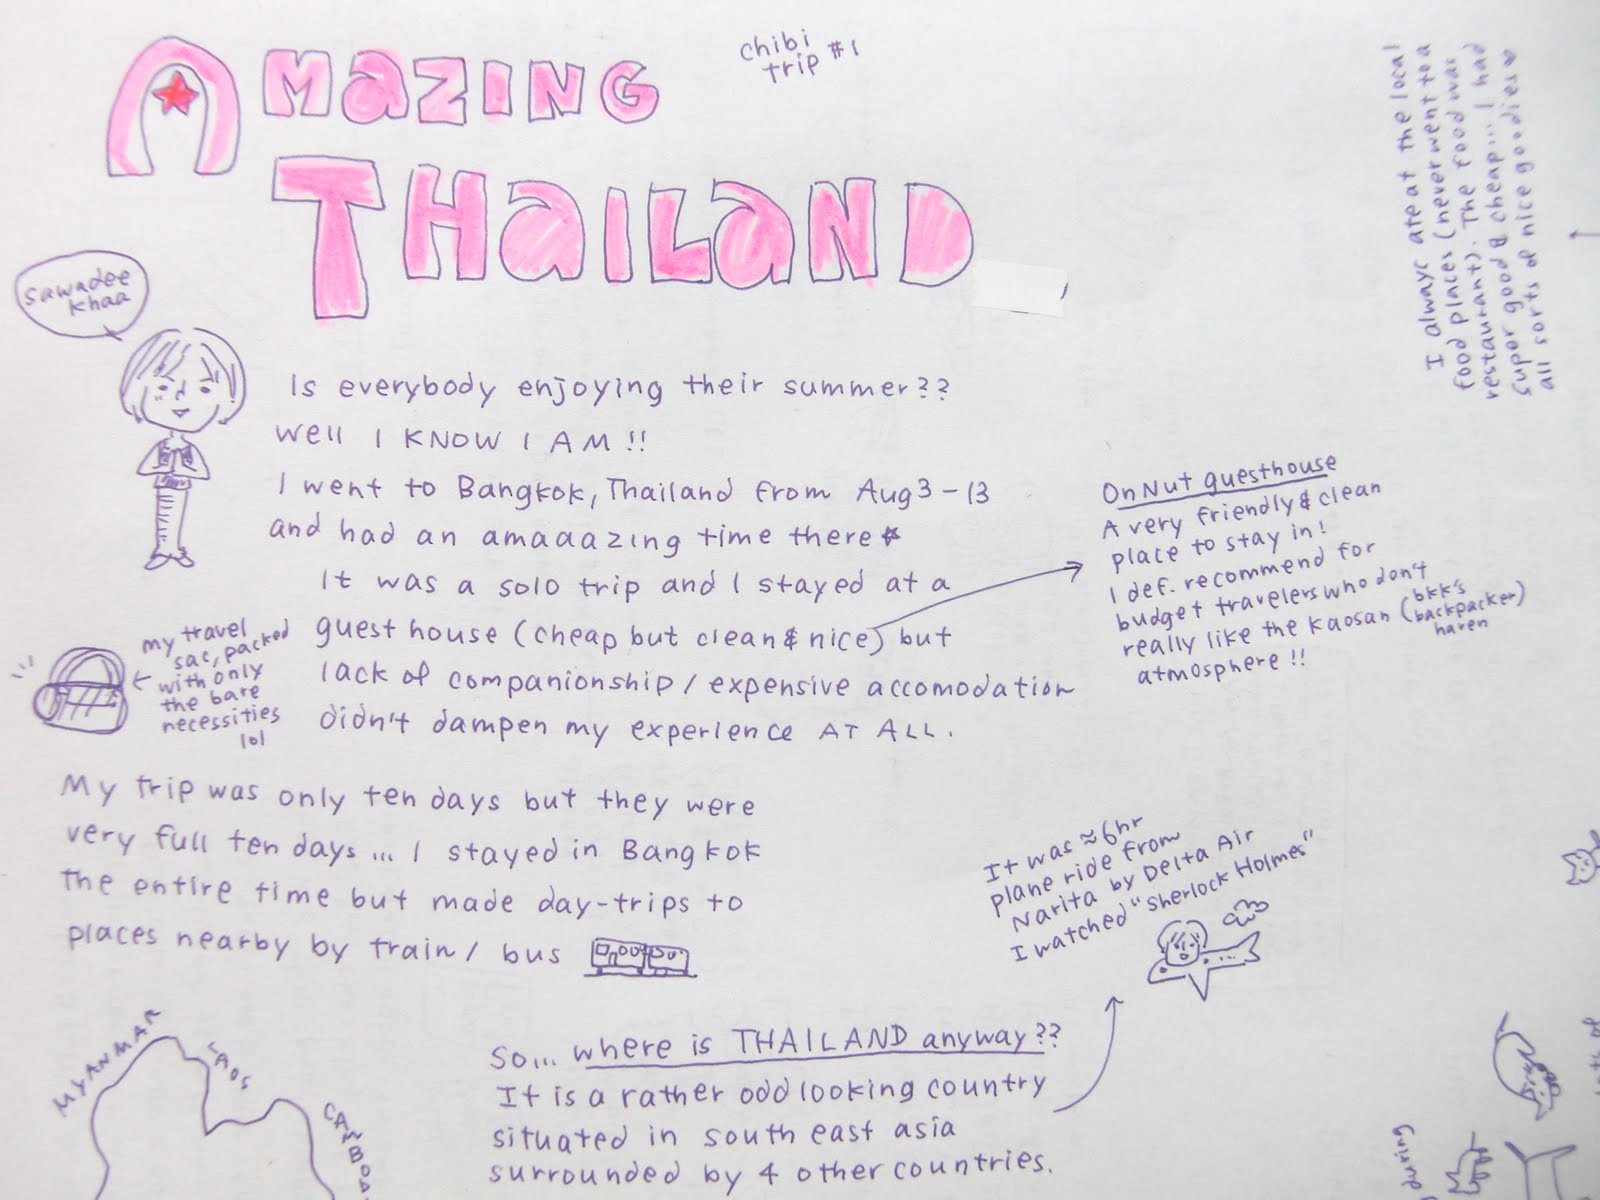 Amazing
Thailand
chibi
trip #1
sawadee
khaa
Is everybody enjoying their summer??
Well I KNOW I AM!!
I went to Bangkok, Thailand from Aug 3-13
and had an amaaazing time there
It was a solo trip and I stayed at a
guesthouse (cheap but clean & nice) but
lack of companionship / expensive accomodation
didn't dampen my experience AT ALL.
my travel
sac, packed
with only
the bare
necessities
lol
OnNut guesthouse
A very friendly & clean
place to stay in!
I def. recommend for
budget travelers who don't
really like the Kaosan (bkk's
backpacker
haven)
atmosphere!!
I always ate at the local
food places (never went to a
restaurant). The food was
super good & cheap... I had
all sorts of nice goodies♥
My trip was only ten days but they were
very full ten days... I stayed in Bangkok
the entire time but made day-trips to
places nearby by train / bus
It was ≈6hr
plane ride from
Narita by Delta Air
I watched "Sherlock Holmes"
So... where is THAILAND anyway??
It is a rather odd looking country
situated in south east asia
surrounded by 4 other countries.
MYANMAR
LAOS
during